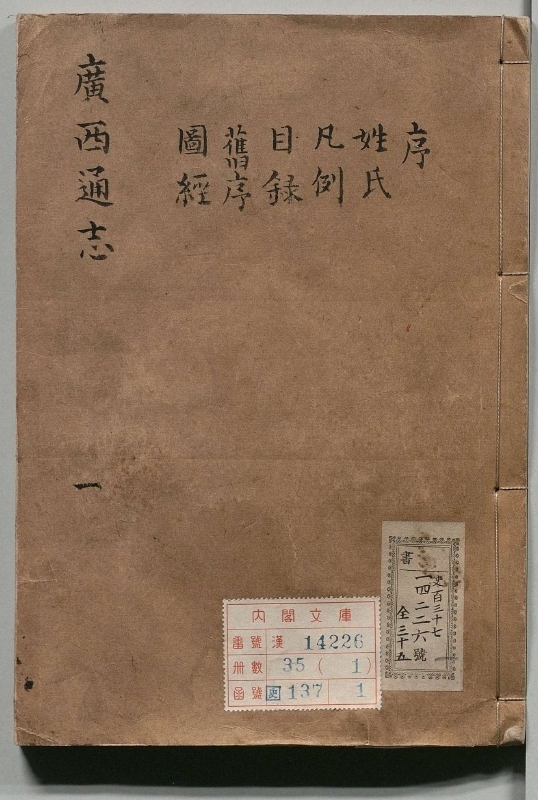 序
姓氏
凡例
目録
舊序
圖經
廣西通志
一
書
史百三十七
一四二二六號
全三十五
內閣文庫
番號 漢 14226
冊數 35 ( 1 )
函號 史 137 1